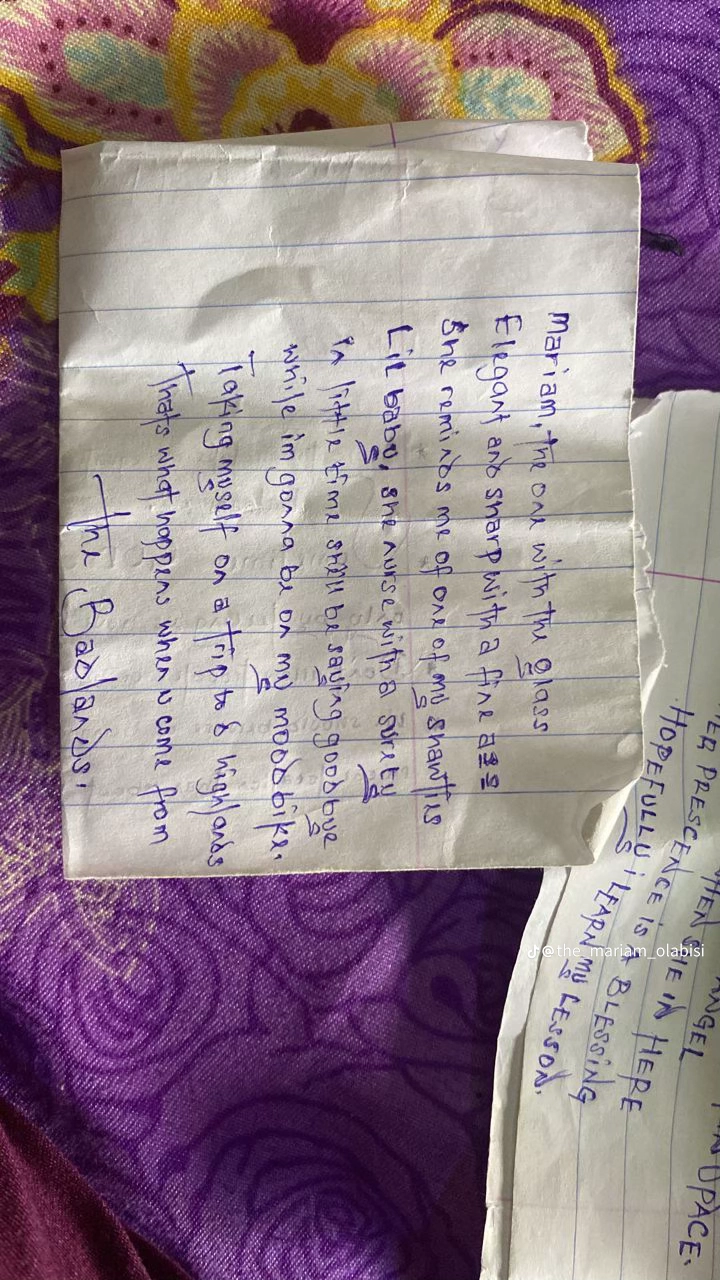 Mariam, the one with the glass
Elegant and sharp with a fine ass
She reminds me of one of my shawtis
Lil baby, she nurse with a surety
in little time shell be saying goodbye
while im gonna be on my moodbike.
Taking myself on a trip to d highlands
Thats what happens when u come from
the Badlands.
UPACE.
ANGEL
WHEN SHE IN HERE
ER PRESCENCE IS A BLESSING
HOPEFULLY I LEARN MY LESSON.
@the_mariam_olabisi